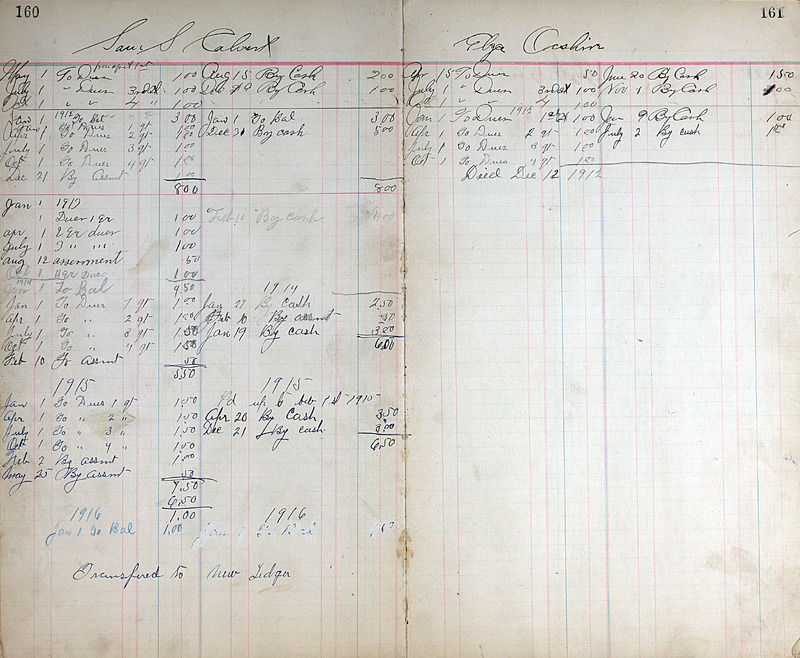 160
Sam S Calvert
May 1 To Dues 1.00 Aug 15 By Cash 2.00
July 1 " Dues 3rd 1.00 By Cash 1.00
Oct 1 " " 4 " 1.00
Jan 1 1912 To Bal 3.00 Jan 1 To Bal 3.00
Jan 1 To Dues 1 qt 1.00 Dec 21 By cash 5.00
Apr 1 To Dues 2 qt 1.00
July 1 To Dues 3 qt 1.00
Oct 1 To Dues 4 qt 1.00
Dec 21 By Assmt
8.00 8.00
Jan 1 1913
1 Dues 1 Qr 1.00 Feb 11 By cash 4.00
apr 1 2 Qr dues 1.00
July 1 3 " " 1.00
aug 12 assessment .50
Oct 1 4 Qr Dues 1.00
1914
Jan 1 To Bal 4.50
1914
Jan 1 To Dues 1 qt 1.00 Jan 27 By cash 2.50
Apr 1 To " 2 qt 1.00 Feb 10 By assmt .50
July 1 To " 3 qt 1.50 Jan 19 By cash 3.00
Oct 1 To " 4 qt 1.50 6.00
Feb 10 To Assmt .50
5.50
1915 1915
Jan 1 To Dues 1 qt 1.50 Pd up to feb 1st 1915
Apr 1 To " 2 " 1.50 Apr 20 By Cash 3.50
July 1 To " 3 " 1.50 Dec 21 By cash 3.00
Oct 1 To " 4 " 1.50 6.50
Feb 2 By assmt 1.00
May 25 By Assmt .50
7.50
6.50
1916 1.00 1916
Jan 1 To Bal 1.00 Jan 1 To Bal
Transfered to New Ledger
161
Apr 15 To Dues 50 June 20 By Cash 1.50
July 1 " Dues 3rd 1.00 Nov 1 By Cash 1.00
Oct 1 " " 4 1.00
Jan 1 To Dues 1912 1st 1.00 Jan 9 By Cash 1.00
Apr 1 To Dues 2 qt 1.00 July 2 By cash
July 1 To Dues 3 qt 1.00
Oct 1 To Dues 4 qt 1.00
Died Dec 12 1912